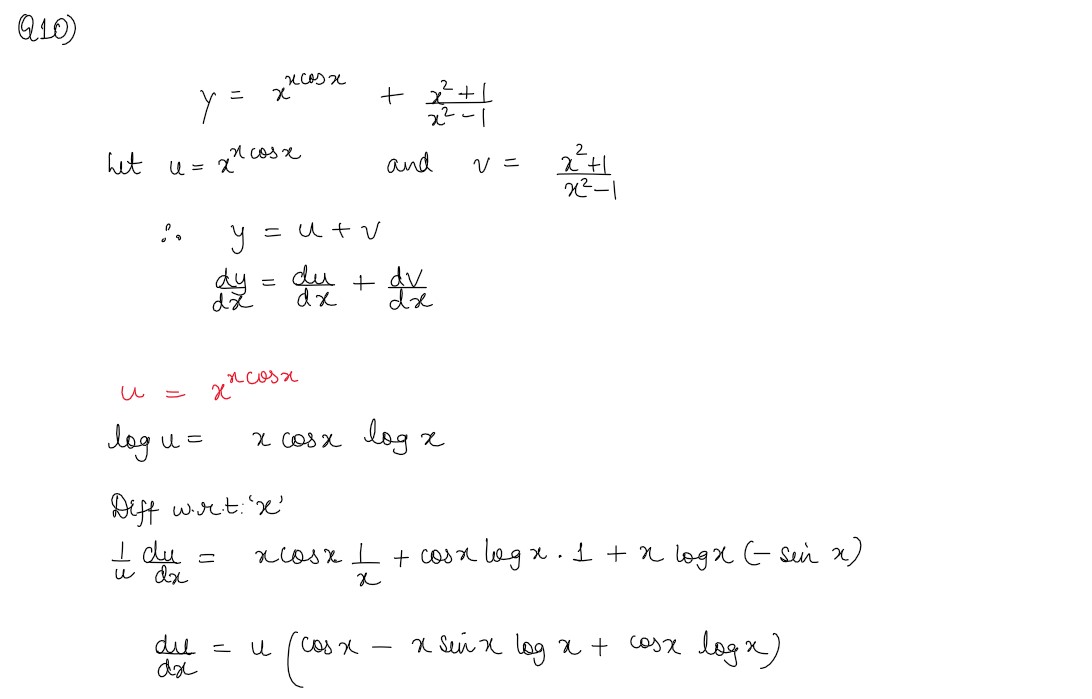 Q10)
y = x^{x cos x} + \frac{x^2+1}{x^2-1}
Let u = x^{x cos x} and v = \frac{x^2+1}{x^2-1}
∴ y = u + v
\frac{dy}{dx} = \frac{du}{dx} + \frac{dv}{dx}
u = x^{x cos x}
log u = x cos x log x
Diff w.r.t: 'x'
\frac{1}{u} \frac{du}{dx} = x cos x \frac{1}{x} + cos x log x . 1 + x log x (- sin x)
\frac{du}{dx} = u (cos x - x sin x log x + cos x log x)